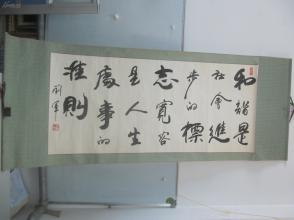 和谐是
社会進
步的標
志寬容
是人生
處事的
准則